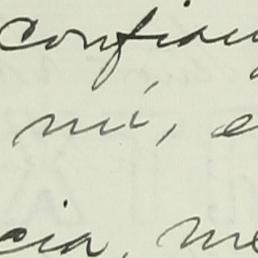 confian
mí, e
cia, me